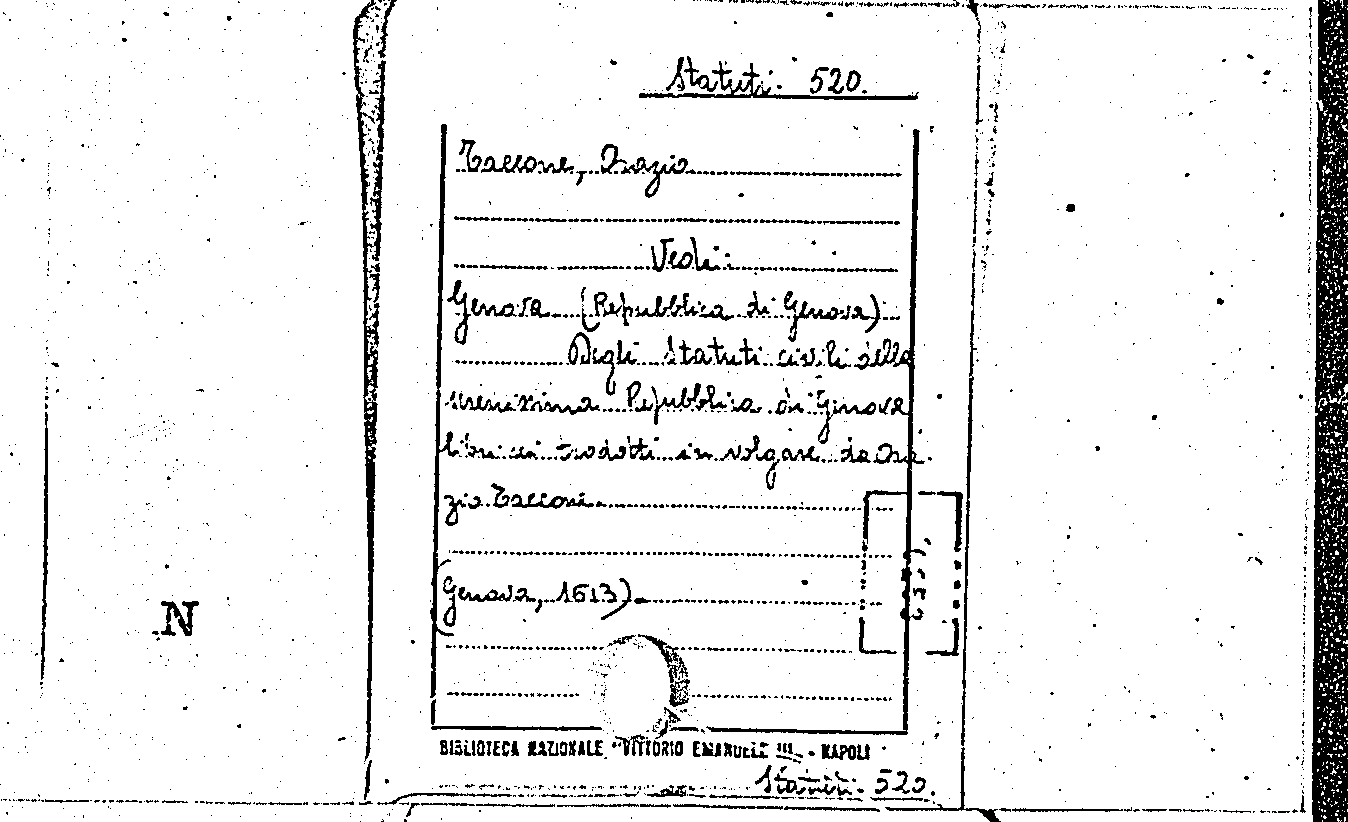 Statuti. 520.
Taccone, Orazio
Vedi:
Genova (Repubblica di Genova)
Degli Statuti civili della
serenissima Repubblica di Genova
libri sei tradotti in volgare da Ora
zio Tacconi.
(Genova, 1613).
N
BIBLIOTECA NAZIONALE "VITTORIO EMANUELE III" - NAPOLI
Statuti. 520.